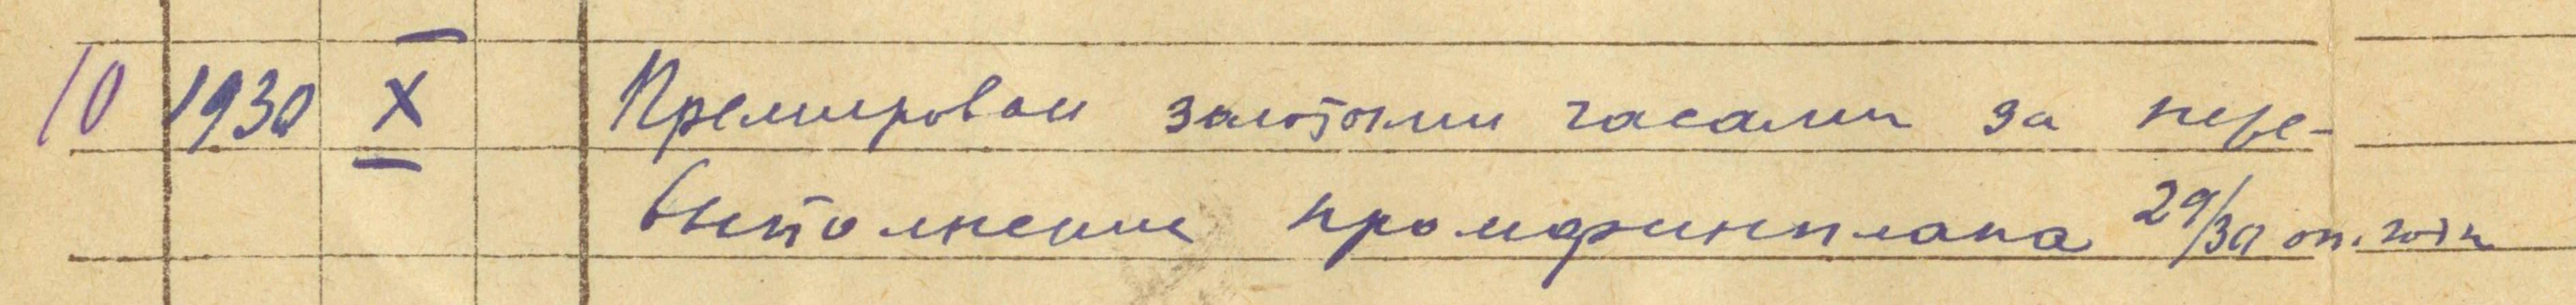 10 1930 X Премирован золотыми часами за пере-
выполнение промфинплана 29/30 оп. года